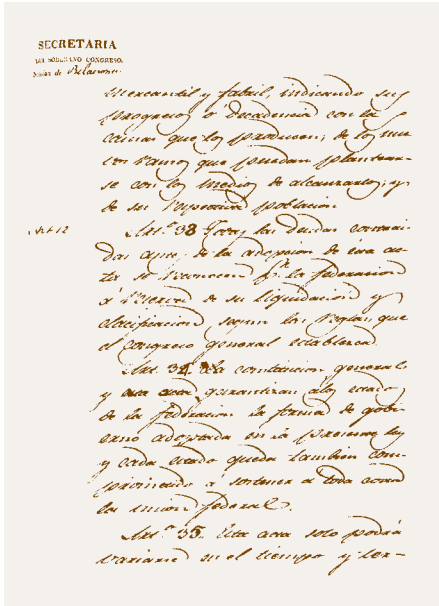 SECRETARIA
DEL SOBERANO CONGRESO.
Sección de Relaciones
mercantil y fabril, indicando sus
progresos ó decadencia con las
causas que los producen; de los nue
vos ramos que puedan plantear-
se con los medios de alcanzarlos; y
de su respectiva población
Art.º 33 Todas las deudas contrai
das antes de la adopcion de esta ac
ta se reconocen p.r la federacion
á reserva de su liquidacion y
clasificacion segun las reglas que
el congreso general establezca.
Art. 34. La constitucion general
y esta acta garantizan á los estados
de la federacion la forma de gobi
erno adoptada en la presente ley
y cada estado queda tambien com
prometido á sostener á toda costa
la union federal.
Art.º 35. Esta acta solo podrá
variarse en el tiempo y ter-